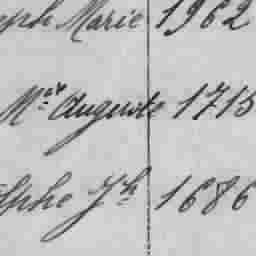 eph Marie 1962
Mie Auguste 1715
lphe Jh 1686